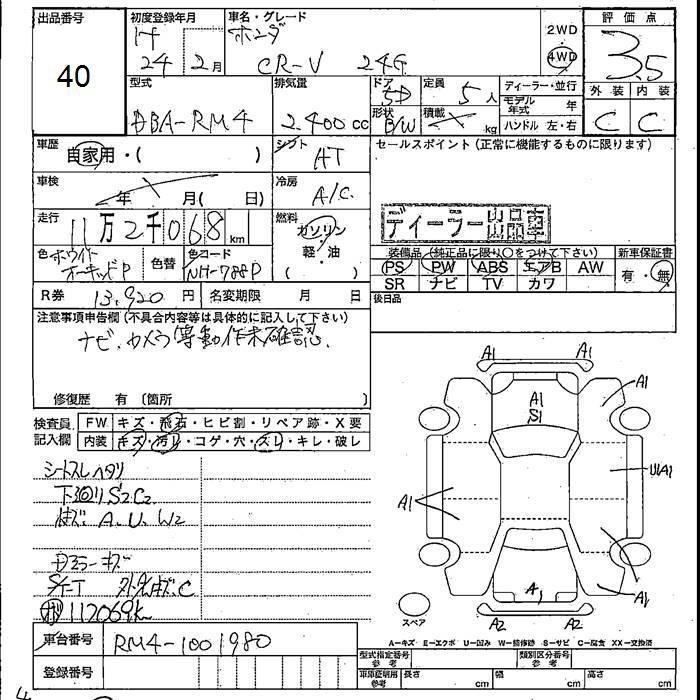 出品番号
40
初度登録年月
H
24年2月
車名・グレード
ホンダ
CR-V 24G
2WD
4WD
評価点
3.5
外装 内装
C C
型式
DBA-RM4
排気量
2.400cc
ドア
5D
形状
B/W
定員
5人
積載
kg
ディーラー・並行
モデル年式 年
ハンドル 左・右
車歴
自家用・( )
シフト
AT
セールスポイント(正常に機能するものに限ります)
車検
年 月( 日)
冷房
A/C
ディーラー出品車
走行
11万2千068km
燃料
ガソリン
軽・油
( )
色 ホワイト
オーキッドP
色替
色コード
NH-788P
装備品(純正品に限り○をつけて下さい)
PS PW ABS エアB AW
SR ナビ TV カワ
新車保証書
有・無
R券 13,920円
名変期限 月 日
後日品
注意事項申告欄(不具合内容等は具体的に記入して下さい)
ナビ、カメラ等動作未確認
修復歴 有 〔箇所 〕
検査員記入欄
FW キズ・飛石・ヒビ割・リペア跡・X要
内装 キズ・汚レ・コゲ・穴・スレ・キレ・破レ
シートスレヘタリ
下回りS2C2
A、U、W2
ミラーキズ
112069K
A1 A1
A1
S1
A1
A1
U1A1
A1
A1
A2 A2
スペア
A-キズ E-エクボ U-凹み W-補修跡 S-サビ C-腐食 XX-交換済
車台番号
RM4-1001980
登録番号
型式指定番号
参考
類別区分番号
参考
車庫証明用
参考
長さ cm
幅 cm
高さ cm